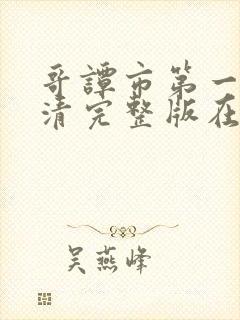 哥谭市第一
清完整版在
吴燕峰